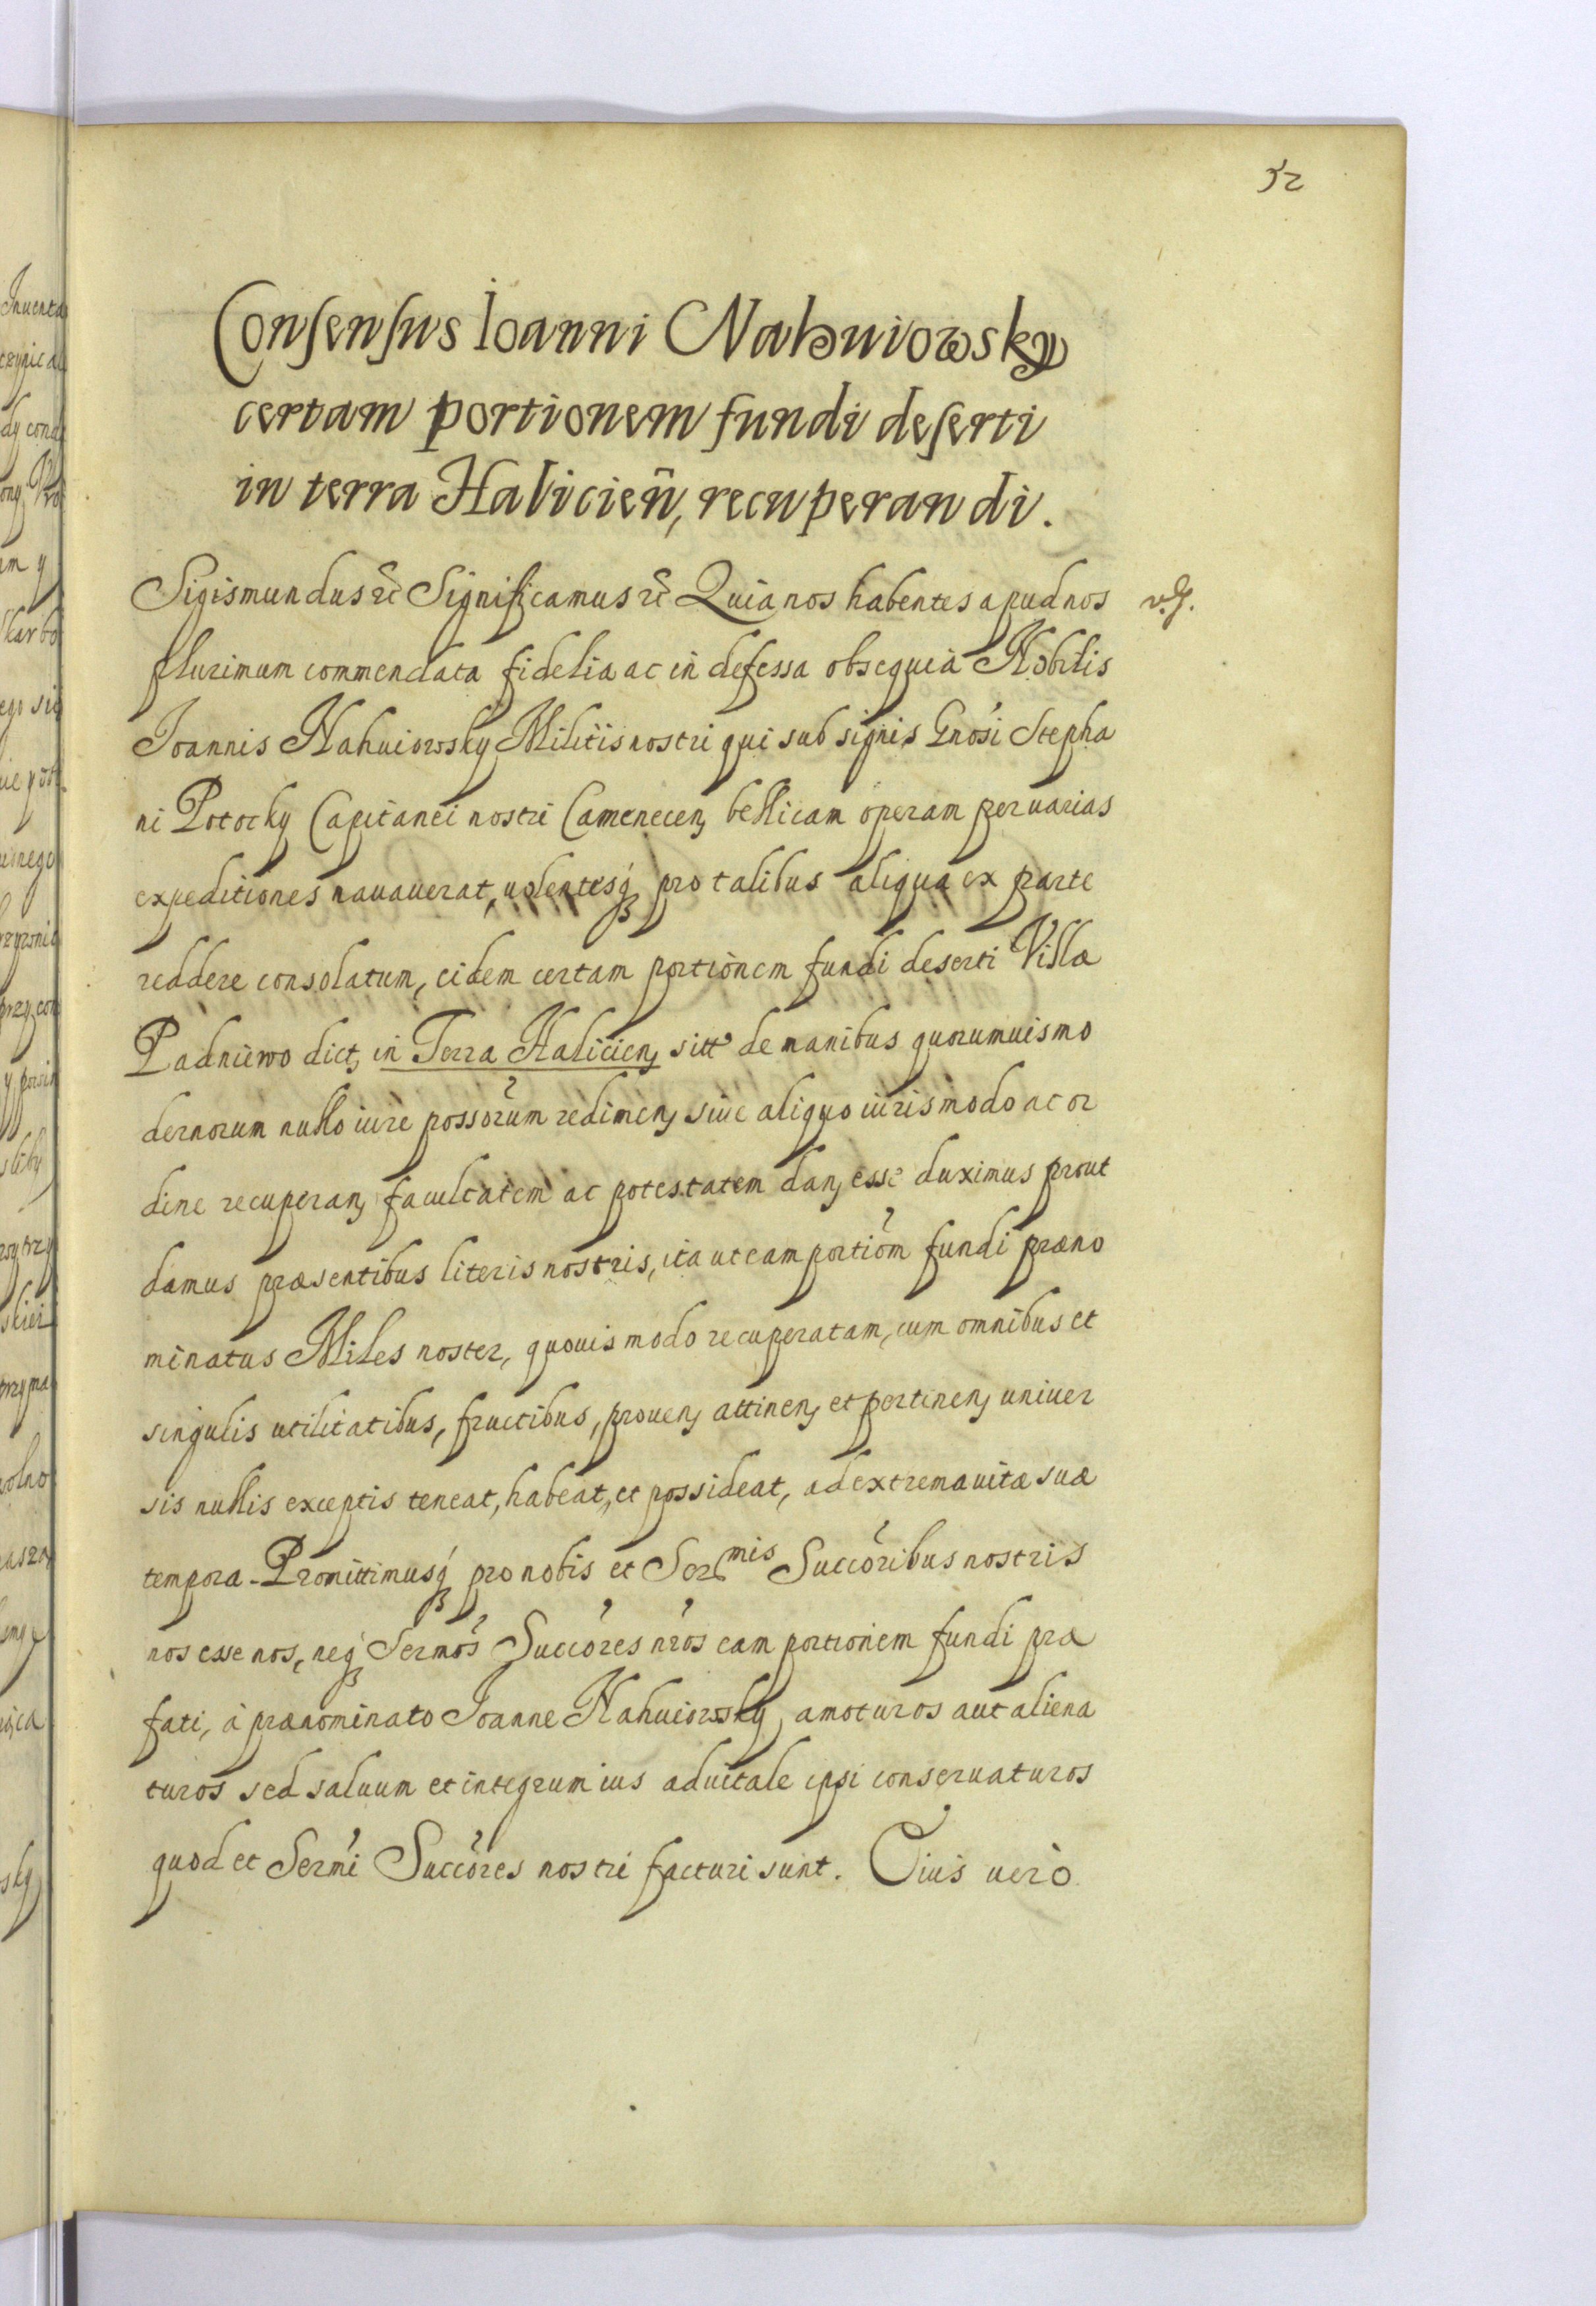 52
Consensus Ioanni Nahuiowsky
certam portionem fundi deserti
in terra Halicien̄, recuperandi.
Sigismundus etc̄ Significamus etc̄ Quia nos habentes apud nos
plurimum commendata fidelia ac indefessa obsequia Nobilis
Joannis Nahuiowsky Militis nostri qui sub signis Gnosi Stepha
ni Potocky Capitanei nostri Camenecen, bellicam operam per uarias
expeditiones nauauerat, uolentesq pro talibus aliqua ex parte
reddere consolatum, eidem certam portionem fundi deserti Villæ
Padniewo dict, in Terra Halicien, sitt de manibus quorumuis mo
dernorum nullo iure possorum redimen, siue aliquo iuris modo ac or
dine recuperan, facultatem ac potestatem dan, esse duximus prout
damus præsentibus literis nostris, ita ut eam portiom fundi præno
minatus Miles noster, quouis modo recuperatam, cum omnibus et
singulis utilitatibus, fructibus, prouen, attinen, et pertinen, uniuer
sis nullis exceptis teneat, habeat, et possideat, ad extrema uitæ suæ
tempora. Promittimusq pro nobis et Ser^mis Succoribus nostris
nos esse nos, neq Sermos Succores nros eam portionem fundi præ
fati, à prænominato Joanne Nahuiowsky, amoturos aut aliena
turos sed saluum et integrum ius aduitale ipsi conseruaturos
quod et Sermi Succores nostri facturi sunt. Cuius uerò